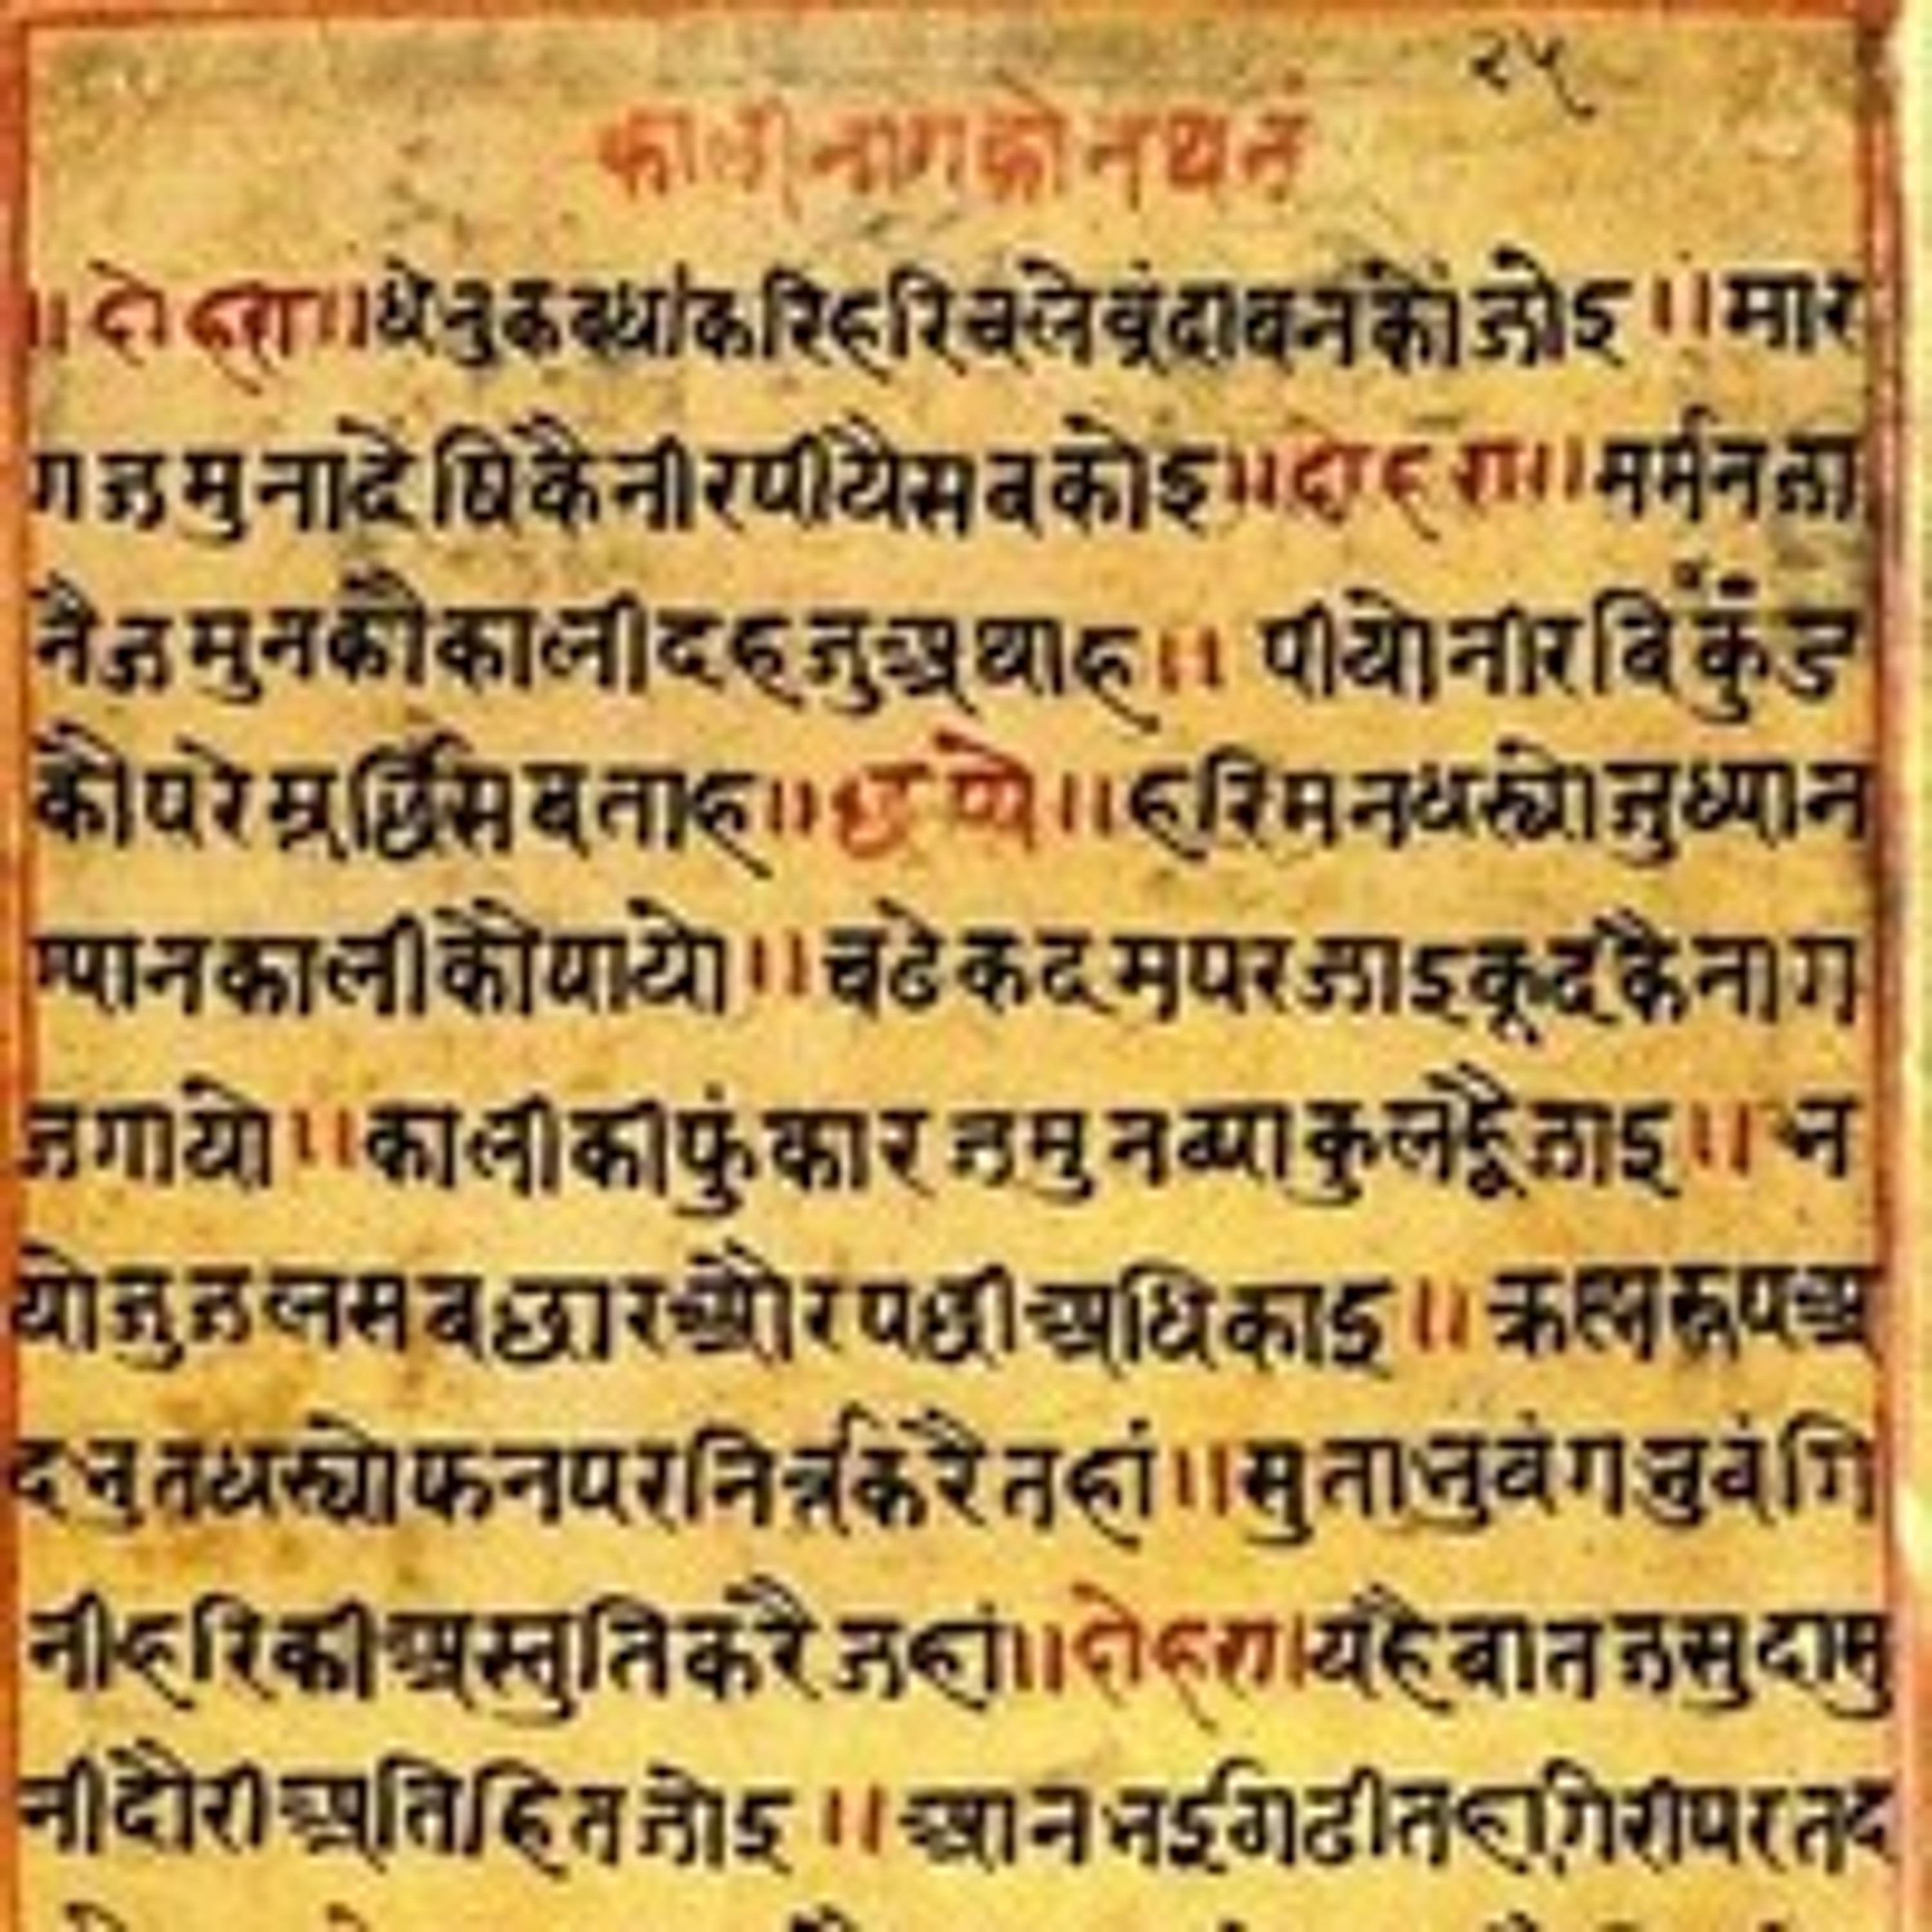 २५
काली नाग को नथनं
॥ दोहरा ॥ धेनुकबधांकरिहरिचलेबृंदाबनकौंजोइ ॥ मार
गजमुनादेषिकैनीरपीयैसबकोइ ॥ दोहरा ॥ मर्मनजा
नैजमुनकौकालीदहजुअथाह ॥ पीयोनीरबिकुंड
कौपरेमूर्छिसबताह ॥ छप्पै ॥ हरिमनधस्योजुध्यान
ग्यानकालीकौपायो ॥ चढेकदमपरजाइकूदकैनाग
जगायो ॥ कालीकीफुंकारजमुनब्याकुलह्वैजाइ ॥ भ
योजुजलसबछारऔरपछीअधिकाइ ॥ रूपअ
तधस्योफनपरनिर्त्तकरैतहां ॥ सुताभुवंगभुवंगि
नीहरिकीअस्तुतिकरैजहां ॥ दोहरा । यहैबातजसुदासु
नीदौरीअतिहितजोइ ॥ आनभईगढीतहांगिरीपरतद